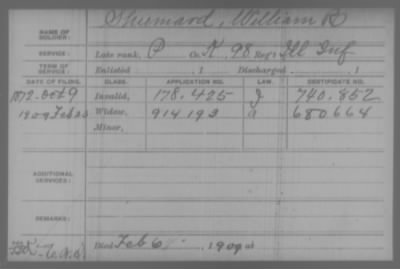 NAME OF SOLDIER: Shumard, William R
SERVICE: Late rank, P Co. K, 98 Reg't Ill Inf
TERM OF SERVICE: Enlisted , 1 Discharged , 1
DATE OF FILING. CLASS. APPLICATION NO. LAW. CERTIFICATE NO.
1872-Oct 9 Invalid, 178.425 J 740.852
1909 Feb 23 Widow, 914.193 680664
Minor,
ADDITIONAL SERVICES:
REMARKS:
Died Feb 6 , 1909 at